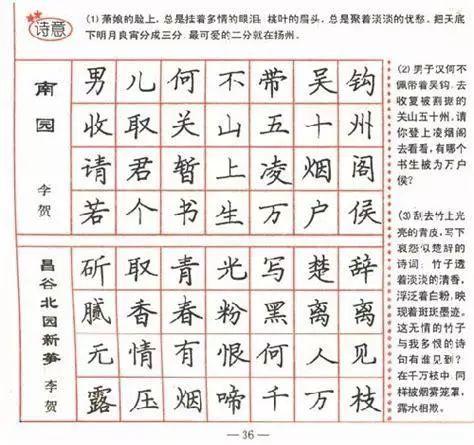 诗意
(1) 萧娘的脸上,总是挂着多情的眼泪 桃叶的眉头,总是聚着淡淡的优愁。把天底
下明月良宵分成三分.最可爱的二分就在扬州。
南园
李贺
男儿何不带吴钩
收取关山五十州
请君暂上凌烟阁
若个书生万户侯
昌谷北园新笋
李贺
斫取青光写楚辞
腻香春粉黑离离
无情有恨何人见
露压烟啼千万枝
(2) 男子汉何不
佩带着吴钩.去
收复被割据的
关山五十州.请
你登上凌烟阁
去看看,有哪个
书生被为万户
侯?
(3) 刮去竹上光
亮的青皮,写下
哀怨似楚辞的
诗词;竹子透
着淡淡的清香,
浮泛着白粉,映
现着斑斑墨迹。
这无情的竹子
与我多恨的诗
句有谁见到?
在千万枝中.同
样披烟雾笼罩,
露水相欺。
— 36 —